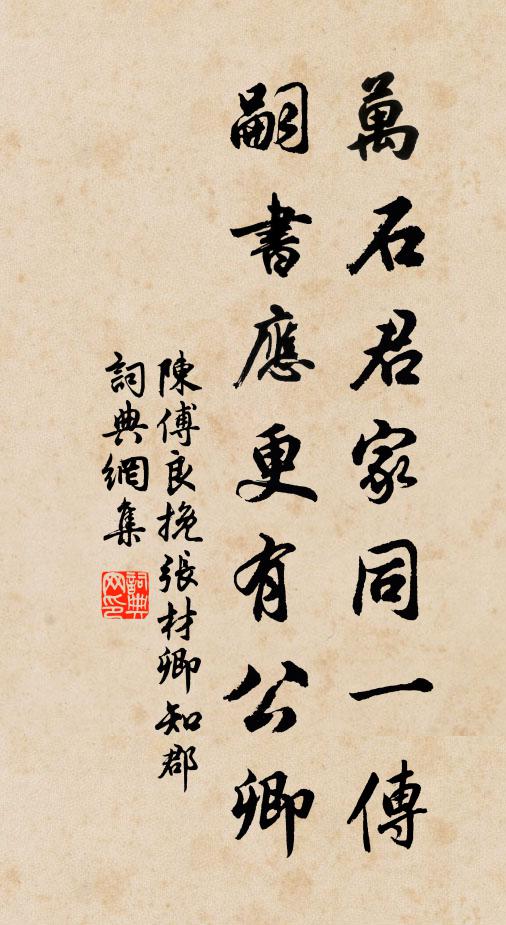 萬石君家同一傳
嗣書應更有公卿
陳傅良挽張材卿知郡
詞典網集
詞典网印